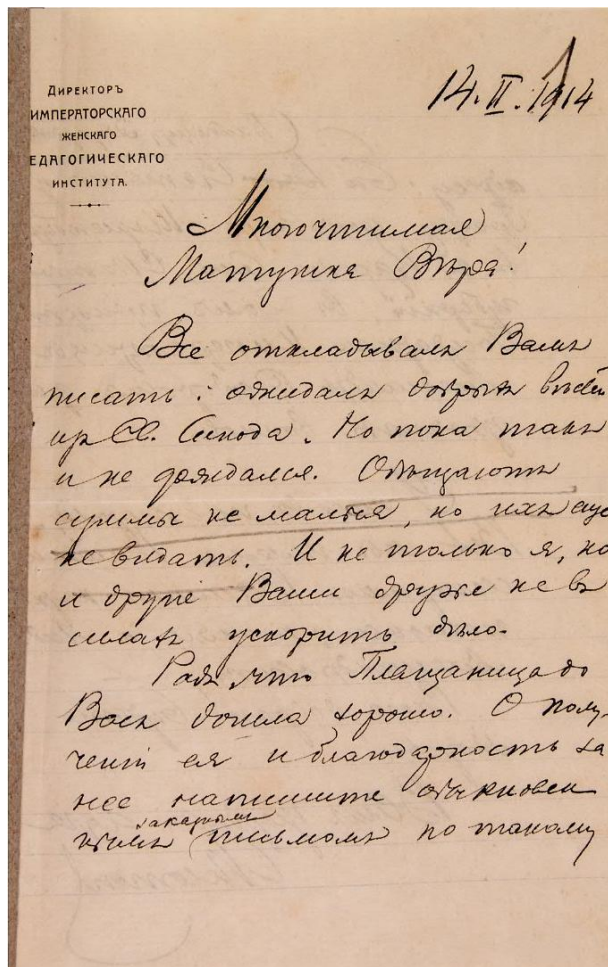 Директоръ
ИМПЕРАТОРСКАГО
ЖЕНСКАГО
ЕДАГОГИЧЕСКАГО
ИНСТИТУТА.
14.II.1914
Многочтимая
Матушка Вѣра!
Все откладывалъ Вамъ
писать: ожидалъ добрыхъ вѣстей
изъ Св. Синода. Но пока такъ
и не дождался. Обѣщаютъ
суммы не малыя, но ихъ еще
не видать. И не только я, но
и другіе Ваши друзья не въ
силахъ ускорить дѣло.
Радъ, что Плащаница до
Васъ дошла хорошо. О полу-
ченіи ея и благодарность за
нее напишите обыкновен
заказнымъ
нымъ письмомъ по такому